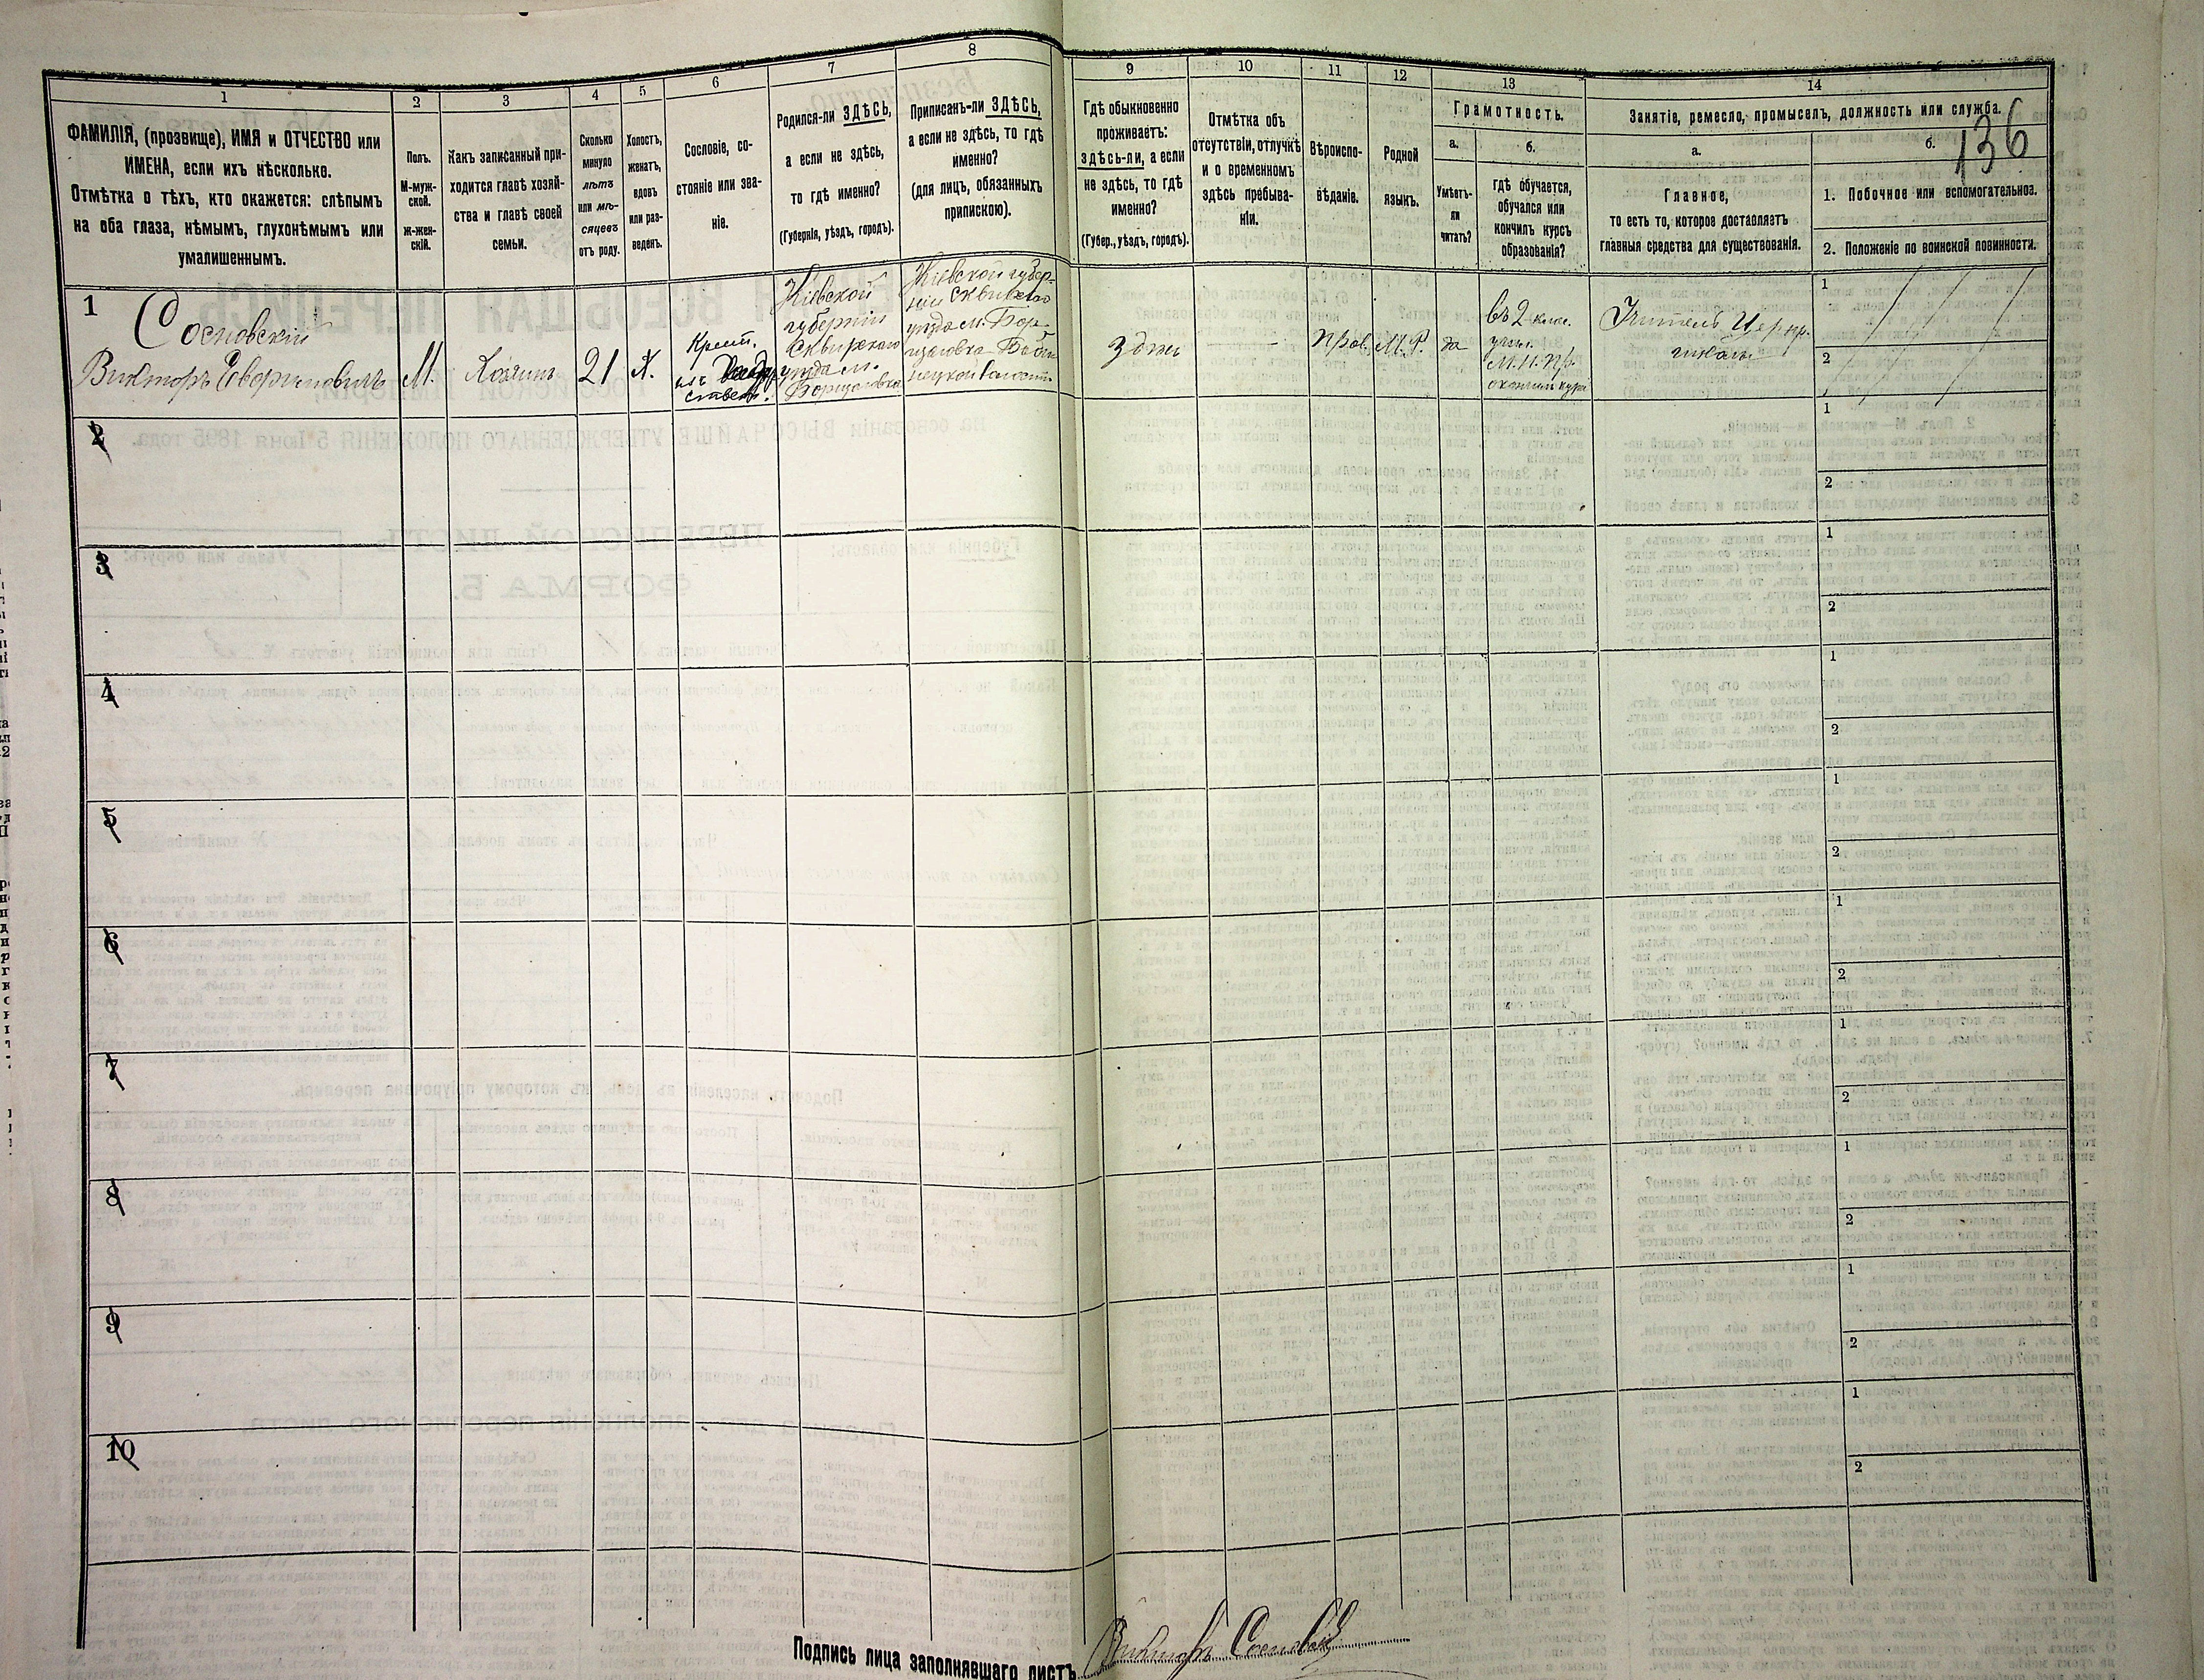 136
1
2
3
4
5
6
7
8
9
10
11
12
13
14
ФАМИЛІЯ, (прозвище), ИМЯ и ОТЧЕСТВО или
ИМЕНА, если ихъ нѣсколько.
Отмѣтка о тѣхъ, кто окажется: слѣпымъ
на оба глаза, нѣмымъ, глухонѣмымъ или
умалишеннымъ.
Полъ.
М-муж-
ской.
ж-жен-
скій.
Какъ записанный при-
ходится главѣ хозяй-
ства и главѣ своей
семьи.
Сколько
минуло
лѣтъ
или мѣ-
сяцевъ
отъ роду.
Холостъ,
женатъ,
вдовъ
или раз-
веденъ.
Сословіе, со-
стояніе или зва-
ніе.
Родился-ли ЗДѢСЬ,
а если не здѣсь,
то гдѣ именно?
(Губернія, уѣздъ, городъ).
Приписанъ-ли ЗДѢСЬ,
а если не здѣсь, то гдѣ
именно?
(для лицъ, обязанныхъ
припискою).
Гдѣ обыкновенно
проживаетъ:
здѣсь-ли, а если
не здѣсь, то гдѣ
именно?
(Губер., уѣздъ, городъ).
Отмѣтка объ
отсутствіи, отлучкѣ
и о временномъ
здѣсь пребыва-
ніи.
Вѣроиспо-
вѣданіе.
Родной
языкъ.
Грамотность.
а.
Умѣетъ-
ли
читать?
б.
гдѣ обучается,
обучался или
кончилъ курсъ
образованія?
Занятіе, ремесло, промыселъ, должность или служба.
а.
Главное,
то есть то, которое доставляетъ
главныя средства для существованія.
б.
1. Побочное или вспомогательное.
2. Положеніе по воинской повинности.
1
Сосновскій
Викторъ
М.
Хозяинъ
21
Х.
Крест.
изъ
Кіевской
губерніи
Сквирскаго
уѣзда м.
Борщаговка
Кіевской губер-
ніи Сквирскаго
уѣзда м. Бор-
щаговка
волости
здѣсь
Прав.
М. Р.
да
въ 2 клас.
учил.
М. Н. Пр.
Учитель Цер. пр.
школы
1
2
2
1
2
3
1
2
4
1
2
5
1
2
6
1
2
7
1
2
8
1
2
9
1
2
10
1
2
Подпись лица заполнявшаго листъ
Викторъ Сосновскій